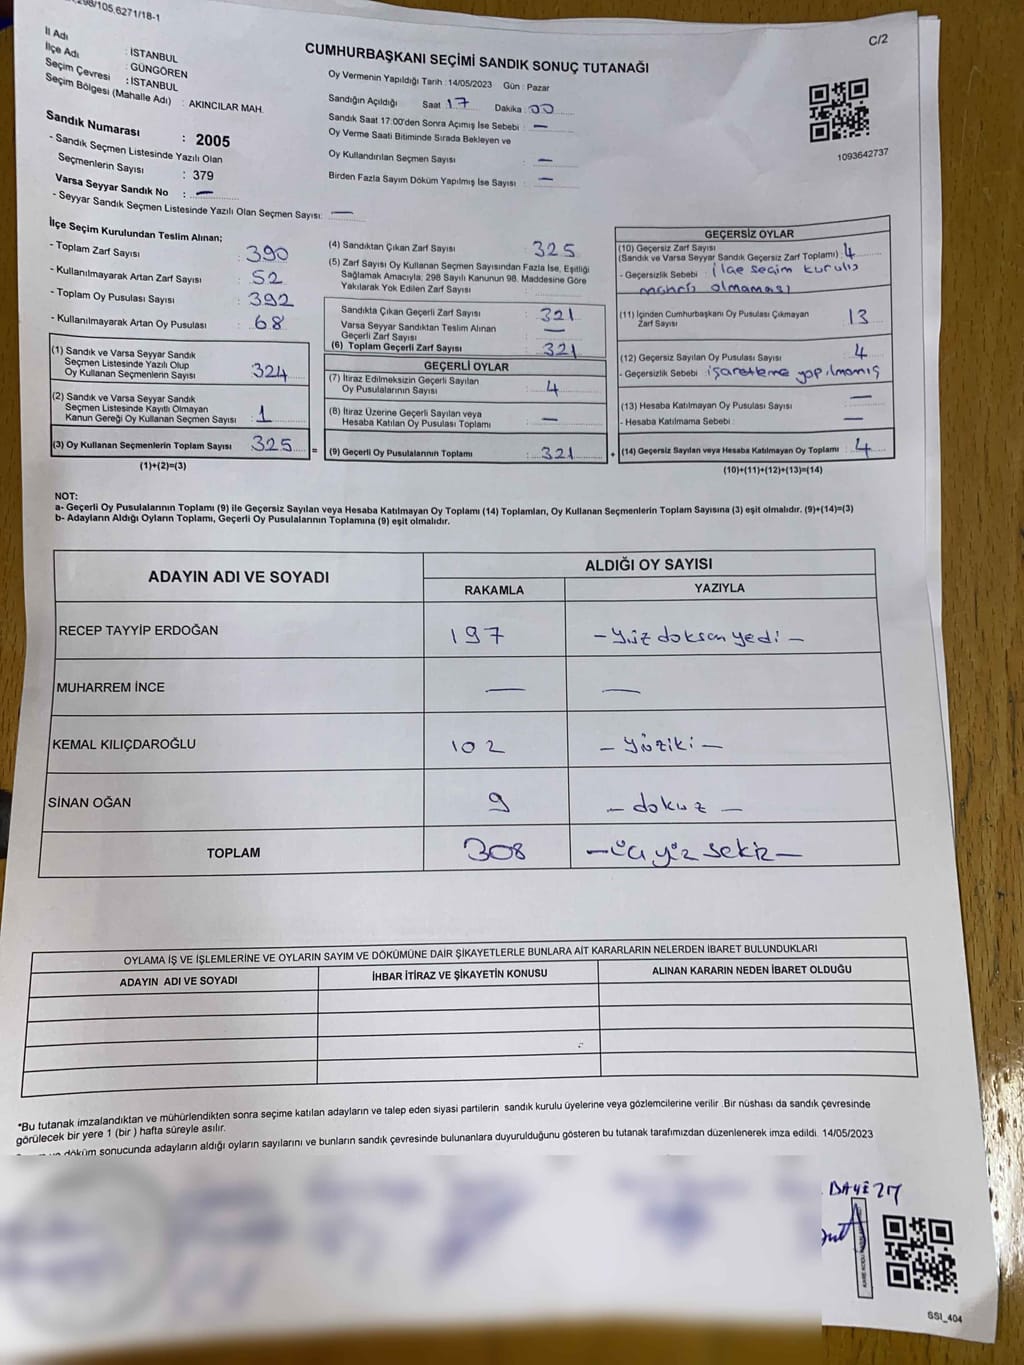 298/105.6271/18-1
C/2
CUMHURBAŞKANI SEÇİMİ SANDIK SONUÇ TUTANAĞI
İl Adı : İSTANBUL
İlçe Adı : GÜNGÖREN
Seçim Çevresi : İSTANBUL
Seçim Bölgesi (Mahalle Adı) : AKINCILAR MAH.
Sandık Numarası : 2005
- Sandık Seçmen Listesinde Yazılı Olan
Seçmenlerin Sayısı : 379
Varsa Seyyar Sandık No : —
- Seyyar Sandık Seçmen Listesinde Yazılı Olan Seçmen Sayısı: —
Oy Vermenin Yapıldığı Tarih : 14/05/2023 Gün : Pazar
Sandığın Açıldığı Saat 17 Dakika : 00
Sandık Saat 17:00'den Sonra Açımış İse Sebebi : —
Oy Verme Saati Bitiminde Sırada Bekleyen ve
Oy Kullandırılan Seçmen Sayısı : —
Birden Fazla Sayım Döküm Yapılmış İse Sayısı : —
1093642737
İlçe Seçim Kurulundan Teslim Alınan;
- Toplam Zarf Sayısı : 390
- Kullanılmayarak Artan Zarf Sayısı : 52
- Toplam Oy Pusulası Sayısı : 392
- Kullanılmayarak Artan Oy Pusulası : 68
(1) Sandık ve Varsa Seyyar Sandık
Seçmen Listesinde Yazılı Olup
Oy Kullanan Seçmenlerin Sayısı : 324
(2) Sandık ve Varsa Seyyar Sandık
Seçmen Listesinde Kayıtlı Olmayan
Kanun Gereği Oy Kullanan Seçmen Sayısı : 1
(3) Oy Kullanan Seçmenlerin Toplam Sayısı 325 =
(1)+(2)=(3)
(4) Sandıktan Çıkan Zarf Sayısı : 325
(5) Zarf Sayısı Oy Kullanan Seçmen Sayısından Fazla İse, Eşitliği
Sağlamak Amacıyla; 298 Sayılı Kanunun 98. Maddesine Göre
Yakılarak Yok Edilen Zarf Sayısı :
Sandıkta Çıkan Geçerli Zarf Sayısı : 321
Varsa Seyyar Sandıktan Teslim Alınan
Geçerli Zarf Sayısı : —
(6) Toplam Geçerli Zarf Sayısı : 321
GEÇERLİ OYLAR
(7) İtiraz Edilmeksizin Geçerli Sayılan
Oy Pusulalarının Sayısı : 4
(8) İtiraz Üzerine Geçerli Sayılan veya
Hesaba Katılan Oy Pusulası Toplamı : —
(9) Geçerli Oy Pusulalarının Toplamı : 321 +
GEÇERSİZ OYLAR
(10) Geçersiz Zarf Sayısı
(Sandık ve Varsa Seyyar Sandık Geçersiz Zarf Toplamı) : 4
- Geçersizlik Sebebi : ilçe seçim kurulu
mührü olmaması
(11) İçinden Cumhurbaşkanı Oy Pusulası Çıkmayan
Zarf Sayısı : 13
(12) Geçersiz Sayılan Oy Pusulası Sayısı : 4
- Geçersizlik Sebebi : işaretleme yapılmamış
(13) Hesaba Katılmayan Oy Pusulası Sayısı : —
- Hesaba Katılmama Sebebi : —
(14) Geçersiz Sayılan veya Hesaba Katılmayan Oy Toplamı : 4
(10)+(11)+(12)+(13)=(14)
NOT:
a- Geçerli Oy Pusulalarının Toplamı (9) ile Geçersiz Sayılan veya Hesaba Katılmayan Oy Toplamı (14) Toplamları, Oy Kullanan Seçmenlerin Toplam Sayısına (3) eşit olmalıdır. (9)+(14)=(3)
b- Adayların Aldığı Oyların Toplamı, Geçerli Oy Pusulalarının Toplamına (9) eşit olmalıdır.
ADAYIN ADI VE SOYADI
ALDIĞI OY SAYISI
RAKAMLA YAZIYLA
RECEP TAYYİP ERDOĞAN 197 – Yüz doksan yedi –
MUHARREM İNCE — —
KEMAL KILIÇDAROĞLU 102 – Yüziki –
SİNAN OĞAN 9 – dokuz –
TOPLAM 308 – üç yüz sekiz –
OYLAMA İŞ VE İŞLEMLERİNE VE OYLARIN SAYIM VE DÖKÜMÜNE DAİR ŞİKAYETLERLE BUNLARA AİT KARARLARIN NELERDEN İBARET BULUNDUKLARI
ADAYIN ADI VE SOYADI İHBAR İTİRAZ VE ŞİKAYETİN KONUSU ALINAN KARARIN NEDEN İBARET OLDUĞU
*Bu tutanak imzalandıktan ve mühürlendikten sonra seçime katılan adayların ve talep eden siyasi partilerin sandık kurulu üyelerine veya gözlemcilerine verilir .Bir nüshası da sandık çevresinde
görülecek bir yere 1 (bir ) hafta süreyle asılır.
döküm sonucunda adayların aldığı oyların sayılarını ve bunların sandık çevresinde bulunanlara duyurulduğunu gösteren bu tutanak tarafımızdan düzenlenerek imza edildi. 14/05/2023
SSI_404